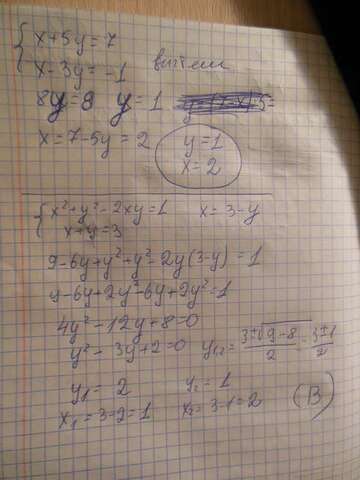 x+5y=7
x-3y=-1 вычтем
8y=8 y=1
x=7-5y=2 y=1
x=2
x²+y²-2xy=1 x=3-y
x+y=3
9-6y+y²+y²-2y(3-y)=1
9-6y+2y²-6y+2y²=1
4y²-12y+8=0
y²-3y+2=0 y₁,₂=(3±√9-8)/2=(3±1)/2
y₁=2 y₂=1
x₁=3-2=1 x₂=3-1=2 (В)